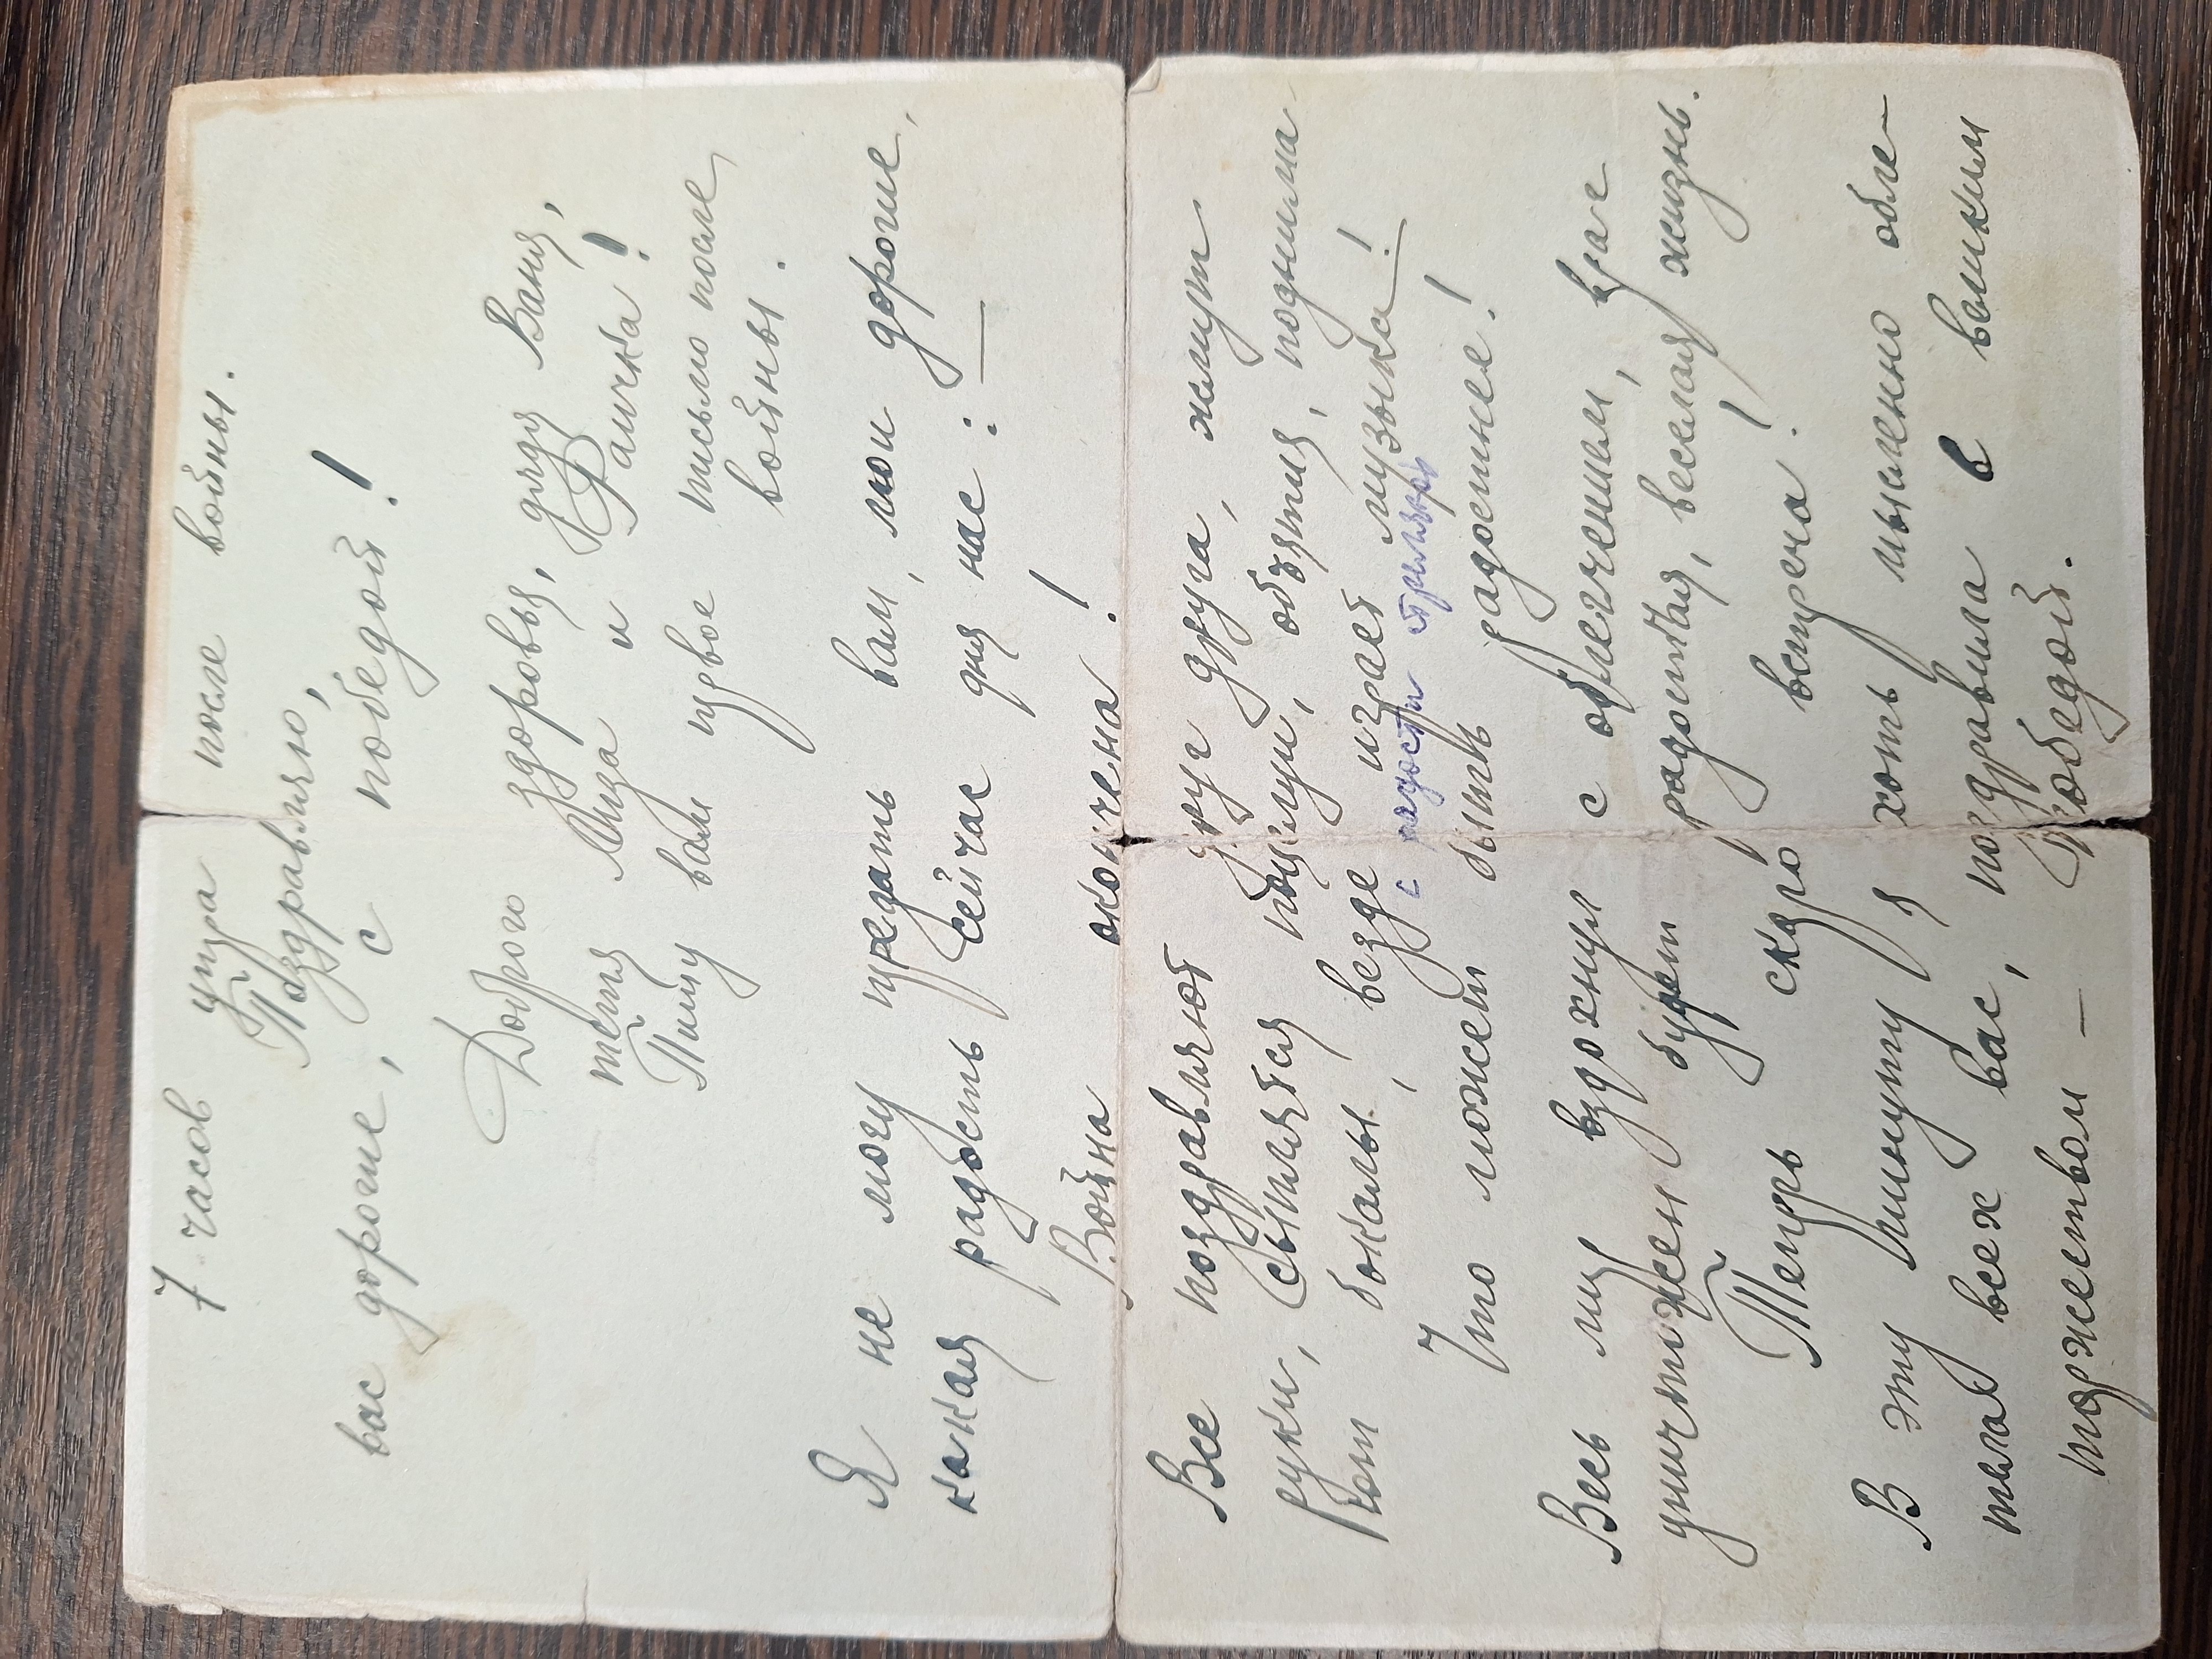 7 часов утра после войны.
Поздравляю,
вас дорогие, с победой!
Доброго здоровья, дядя Ваня,
тётя Лиза и Раичка!
Пишу вам первое письмо после
войны.
Я не могу предать вам, мои дорогие,
какая радость сейчас для нас:
Война окончена!
Все поздравляют друг друга, жмут
руки, сыплятся поцелуи, объятия, поднима
ют бокалы, везде играет музыка!
с радости
Что может быть радостнее!
Весь мир вздохнул с облегчением, враг
уничтожен будет радостная, веселая жизнь.
Теперь скоро встреча!
В эту минуту я хоть мысленно обле
тела всех вас, поздравила в великим
торжеством – Победой.